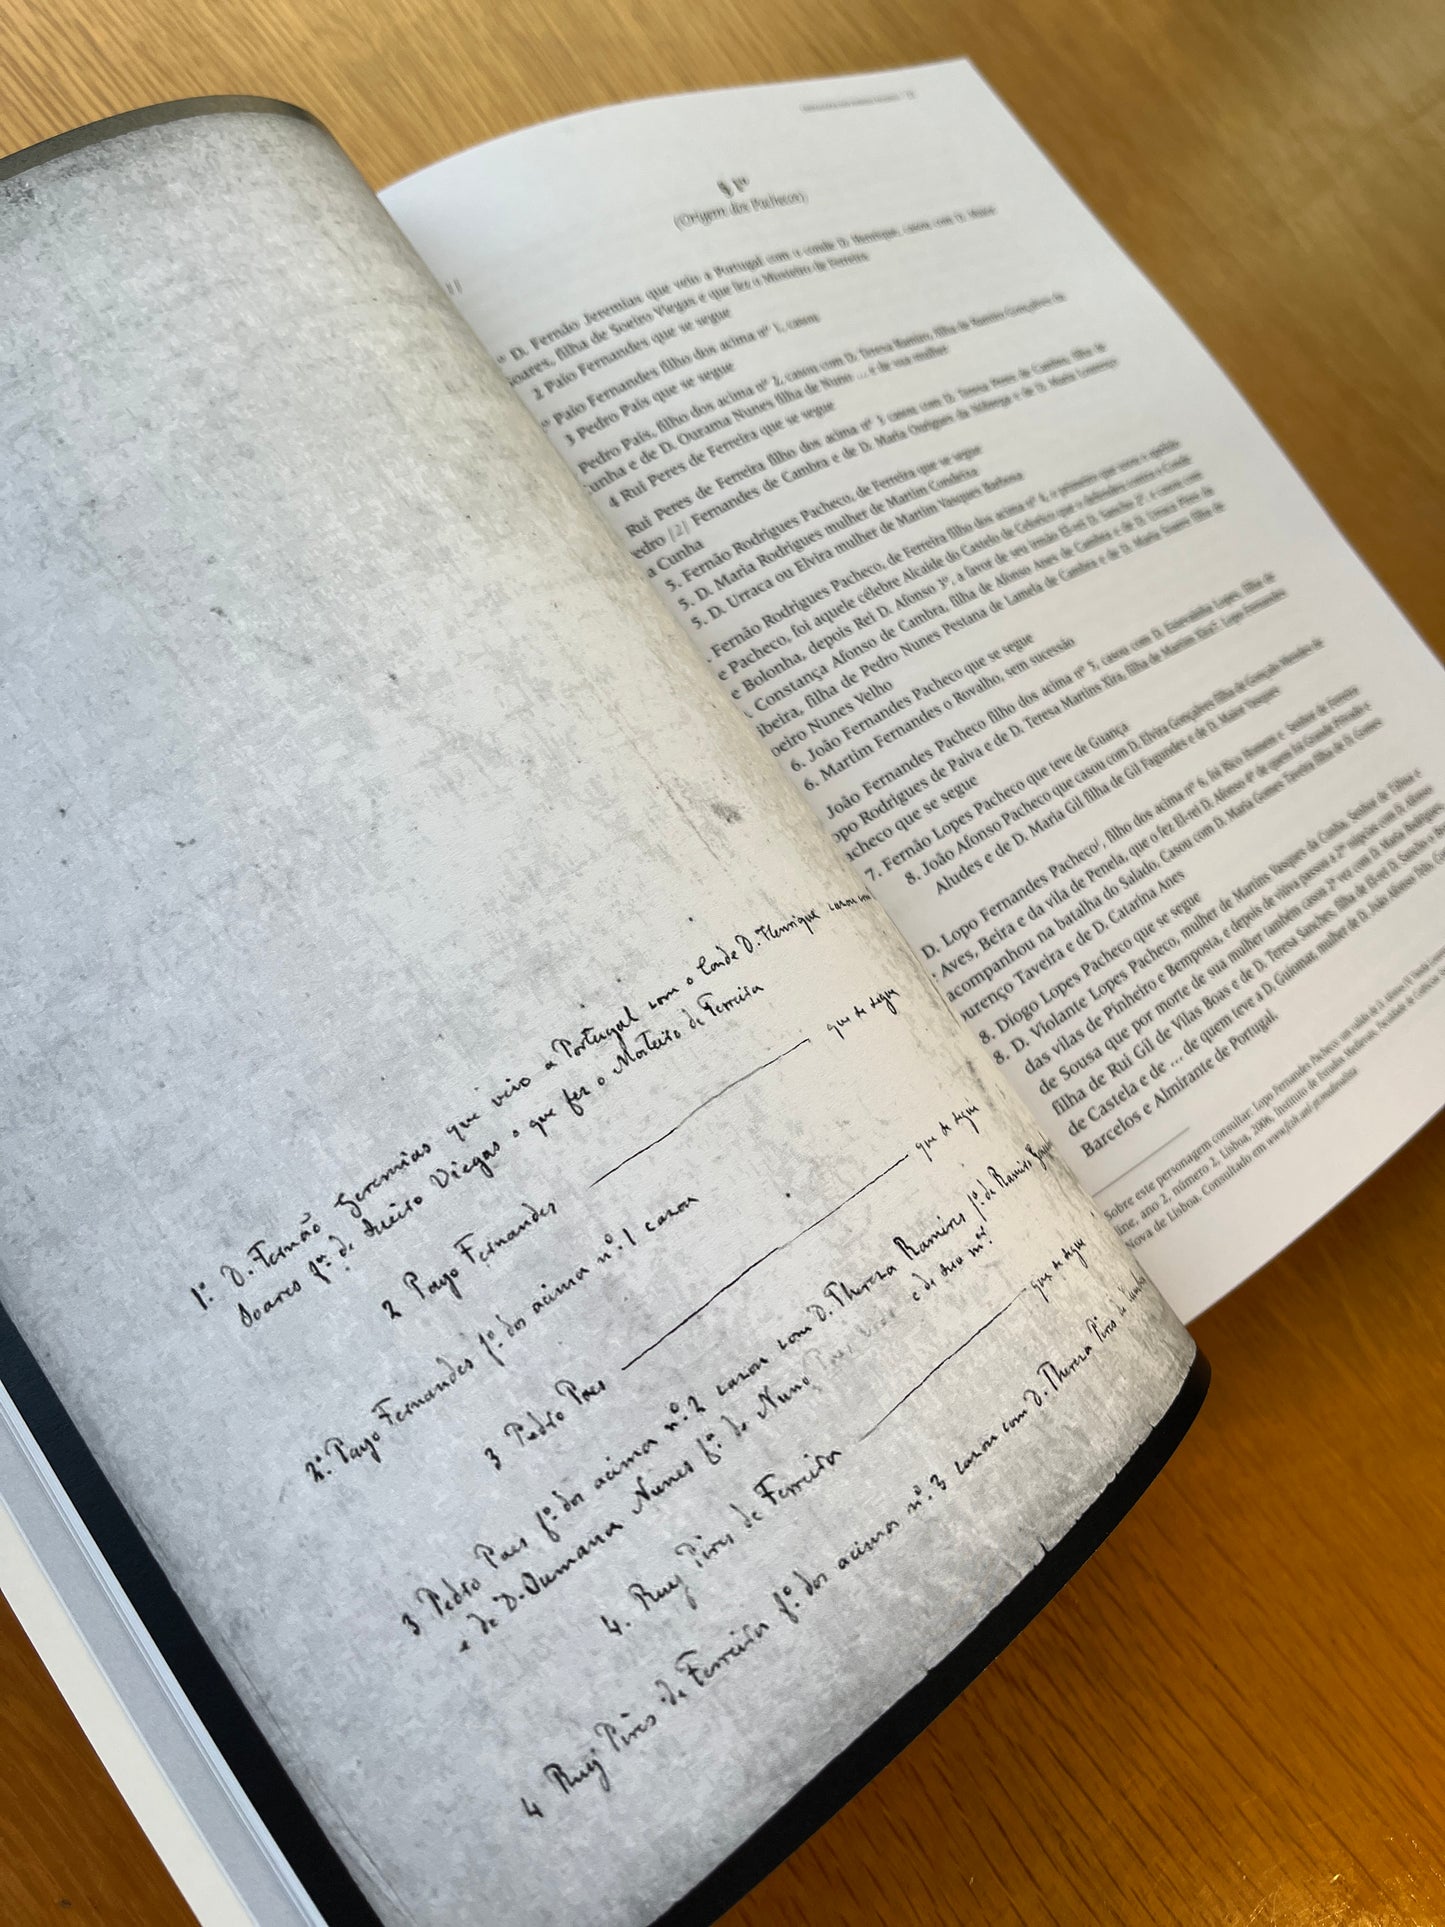 1º. D. Fernão Geremias que veio a Portugal com o Conde D. Henrique cazou com
Soares fª. de Sueiro Viegas e que fez o Mosteiro de Ferreira
2 Payo Fernandes que se segue
2º. Payo Fernandes fº. dos acima nº. 1 cazou
3 Pedro Paes que se segue
3 Pedro Paes fº. dos acima nº. 2 cazou com D. Thereza Ramires fª. de Ramiro
e de D. Ouruana Nunes fª. de Nuno e de sua mer
4. Ruy Pires de Ferreira que se segue
4 Ruy Pires de Ferreira fº. dos acima nº. 3 cazou com D. Thereza Pires de Cunha
§ 1º
(Origem dos Pachecos)
D. Fernão Jeremias que veio a Portugal com o conde D. Henrique, casou com D. Maior
Soares, filha de Soeiro Viegas e que fez o Mosteiro de Ferreira
2 Paio Fernandes que se segue
Paio Fernandes filho dos acima nº 1, casou
3 Pedro Pais que se segue
Pedro Pais, filho dos acima nº 2, casou com D. Teresa Ramires, filha de Ramiro Gonçalves da
Cunha e de D. Ourama Nunes filha de Nuno ... e de sua mulher
4 Rui Peres de Ferreira que se segue
Rui Peres de Ferreira filho dos acima nº 3 casou com D. Teresa Peres de Cambra, filha de
Pedro [2] Fernandes de Cambra e de D. Maria Ourigues da Nóbrega e de D. Maria Lourenço
da Cunha
5. Fernão Rodrigues Pacheco, de Ferreira que se segue
5. D. Maria Rodrigues mulher de Martim Condeixa
5. D. Urraca ou Elvira mulher de Martim Vasques Barbosa
Fernão Rodrigues Pacheco, de Ferreira filho dos acima nº 4, o primeiro que teve o apelido
de Pacheco, foi aquele célebre Alcaide do Castelo de Celorico que o defendeu contra o Conde
de Bolonha, depois Rei D. Afonso 3º, a favor de seu irmão El-rei D. Sancho 2º e casou com
D. Constança Afonso de Cambra, filha de Afonso Anes de Cambra e de D. Urraca Pires da
Ribeira, filha de Pedro Nunes Pestana de Lamela de Cambra e de D. Maria Soares filha de
Soeiro Nunes Velho
6. João Fernandes Pacheco que se segue
6. Martim Fernandes o Rovalho, sem sucessão
João Fernandes Pacheco filho dos acima nº 5, casou com D. Estevainha Lopes, filha de
Lopo Rodrigues de Paiva e de D. Teresa Martins Xira, filha de Martim Xira?. Lopo Fernandes
Pacheco que se segue
7. Fernão Lopes Pacheco que teve de Guança
8. João Afonso Pacheco que casou com D. Elvira Gonçalves filha de Gonçalo Mendes de
Aludes e de D. Maria Gil filha de Gil Fagundes e de D. Maior Vasques
D. Lopo Fernandes Pacheco¹, filho dos acima nº 6, foi Rico Homem e Senhor de Ferreira
Aves, Beira e da vila de Penela, que o fez El-rei D. Afonso 4º de quem foi Grande Privado e
acompanhou na batalha do Salado. Casou com D. Maria Gomes Taveira filha de D. Gomes
Lourenço Taveira e de D. Catarina Anes
8. Diogo Lopes Pacheco que se segue
8. D. Violante Lopes Pacheco, mulher de Martins Vasques da Cunha, Senhor de Tábua e
das vilas de Pinheiro e Bemposta, e depois de viúva passou a 2ªˢ núpcias com D. Afonso
de Sousa que por morte de sua mulher também casou 2ª vez com D. Maria Rodrigues,
filha de Rui Gil de Vilas Boas e de D. Teresa Sanches, filha de El-rei D. Sancho o
de Castela e de ... de quem teve a D. Guiomar, mulher de D. João Afonso Telo,
Barcelos e Almirante de Portugal.
Sobre este personagem consultar: Lopo Fernandes Pacheco: um valido de D. Afonso IV,
line, ano 2, número 2, Lisboa, 2006, Instituto de Estudos Medievais, Faculdade de Ciências
Nova de Lisboa. Consultado em www.fcsh.unl.pt/medievalista